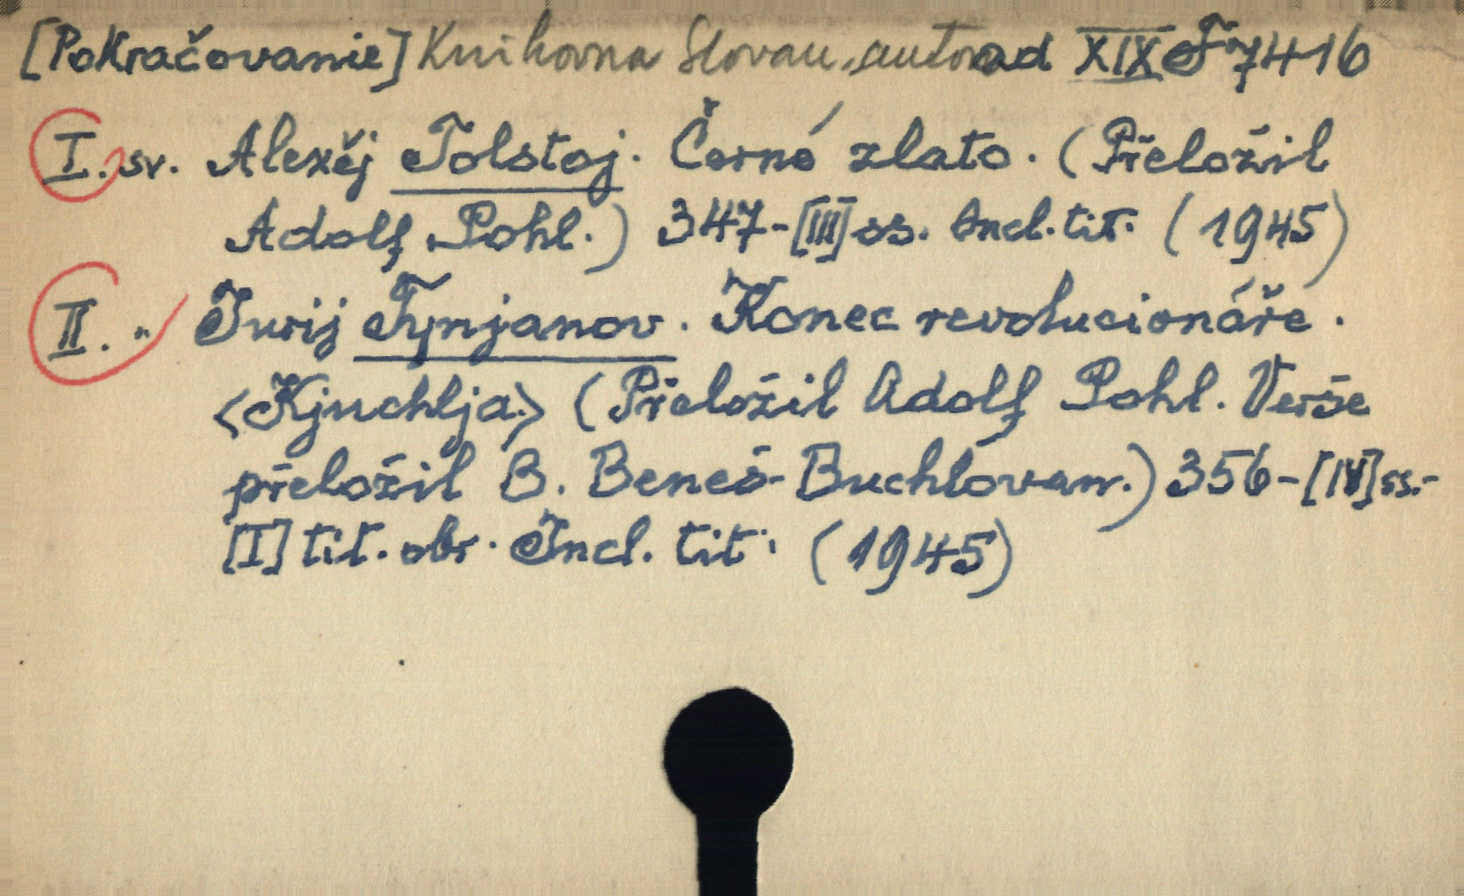 [Pokračovanie] Knihovna Slovan. autorov ad XIX F 7416
I. sv. Alexěj Tolstoj. Černé zlato. (Přeložil
Adolf Pohl.) 347-[III] ss. Incl. tit. (1945)
II. " Jurij Tynjanov. Konec revolucionáře.
<Kjuchlja> (Přeložil Adolf Pohl. Verše
přeložil B. Beneš-Buchlovan.) 356-[IV] ss.-
[I] tit. obr. Incl. tit. (1945)